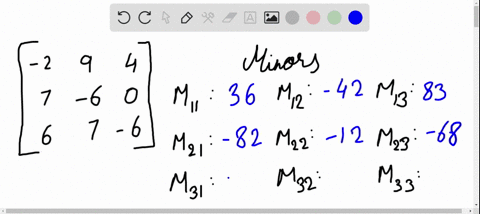 -2 9 4
7 -6 0
6 7 -6
Minors
M11: 36 M12: -42 M13: 83
M21: -82 M22: -12 M23: -68
M31: M32: M33: